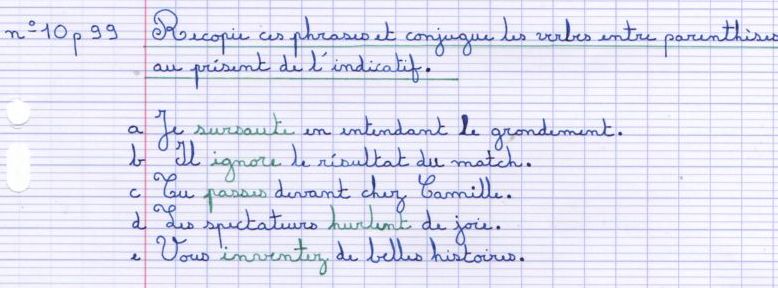 n° 10 p 99 Recopie ces phrases et conjugue les verbes entre parenthèses
au présent de l'indicatif.
a Je sursaute en entendant le grondement.
b Il ignore le résultat du match.
c Tu passes devant chez Camille.
d Les spectateurs hurlent de joie.
e Vous inventez de belles histoires.